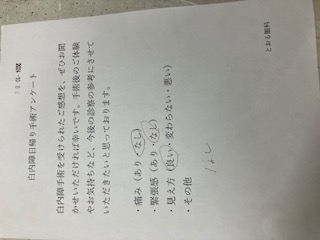 とおる眼科
白内障日帰り手術アンケート
白内障手術を受けられたご感想を、ぜひお聞
かせいただければ幸いです。手術後のご体験
やお気持ちなど、今後の診察の参考にさせて
いただきたいと思っております。
・痛み（あり・なし）
・緊張感（あり・なし）
・見え方（良い・変わらない・悪い）
・その他
なし